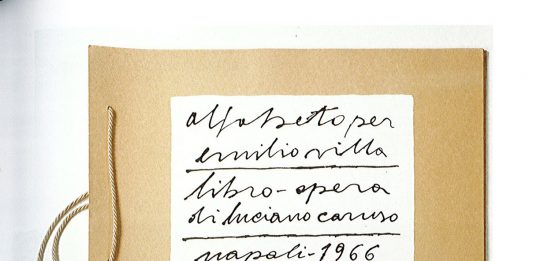 alfabeto per
emilio villa
libro-opera
di luciano caruso
napoli-1966